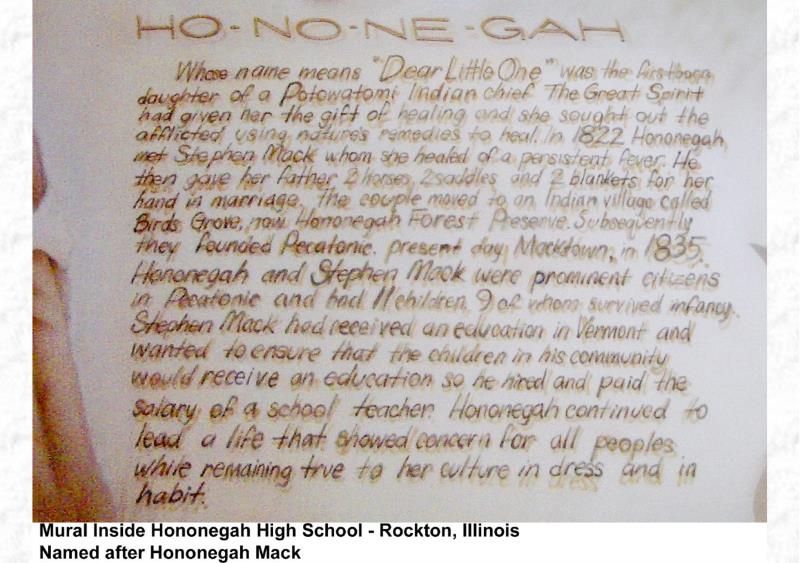 HO-NO-NE-GAH
Whose name means "Dear Little One" was the firstborn
daughter of a Potowatomi Indian chief The Great Spirit
had given her the gift of healing and she sought out the
afflicted using nature's remedies to heal. In 1822 Hononegah
met Stephen Mack whom she healed of a persistent fever. He
then gave her father 2 horses, 2 saddles and 2 blankets for her
hand in marriage. The couple moved to an Indian village called
Birds Grove, now Hononegah Forest Preserve. Subsequently
they founded Pecatonic. present day Macktown, in 1835.
Hononegah and Stephen Mack were prominent citizens
in Pecatonic and had 11 children, 9 of whom survived infancy.
Stephen Mack had received an education in Vermont and
wanted to ensure that the children in his community
would receive an education so he hired and paid the
salary of a school teacher. Hononegah continued to
lead a life that showed concern for all peoples
while remaining true to her culture in dress and in
habit.
Mural Inside Hononegah High School - Rockton, Illinois
Named after Hononegah Mack